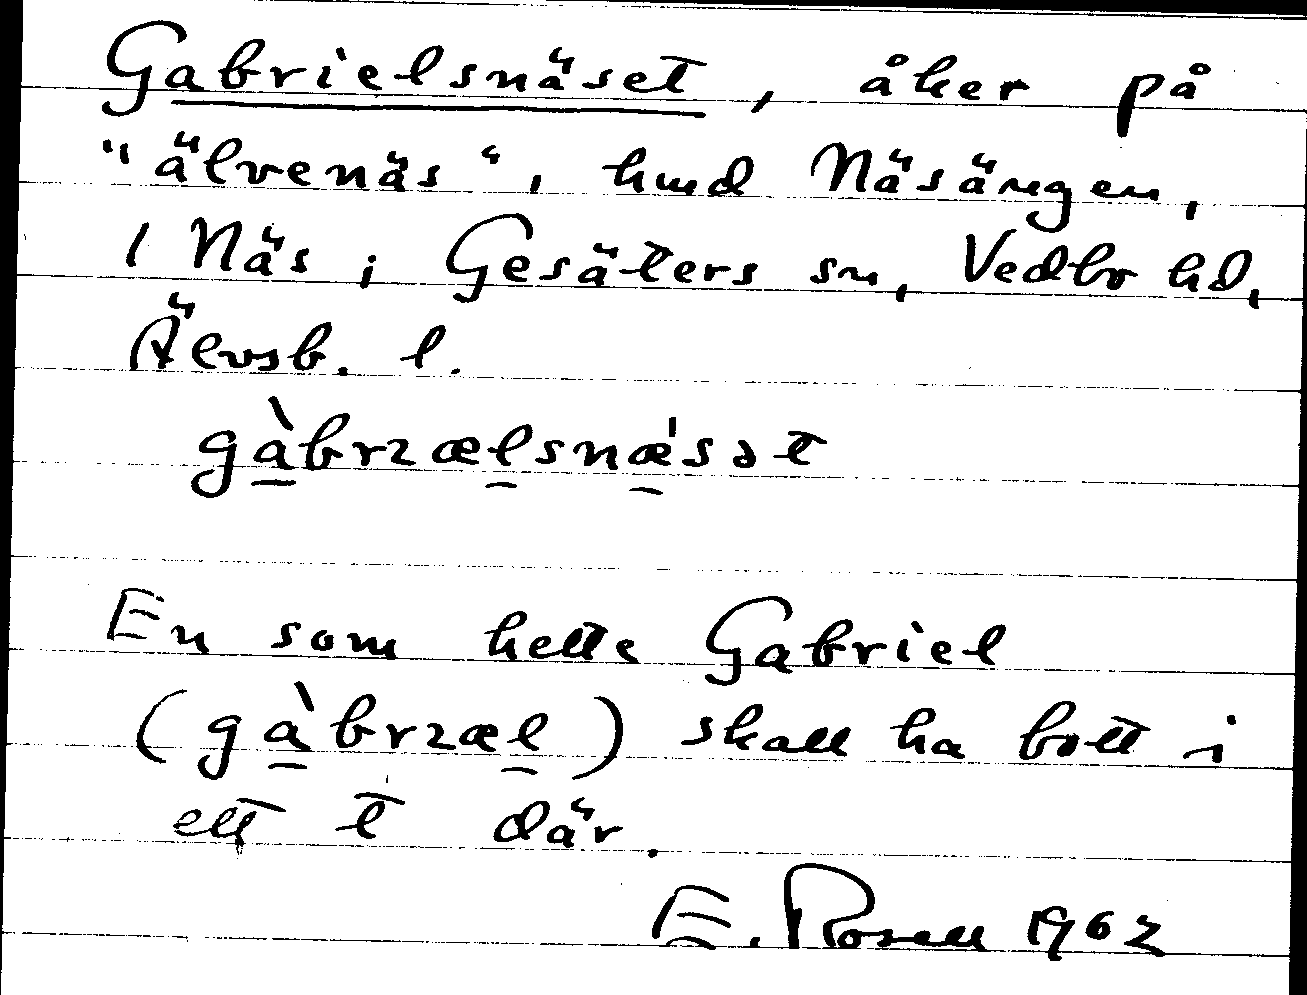 Gabrielsnäset, åker på
"älvenäs", hmd Näsängen,
1 Näs i Gesäters sn, Vedbo hd,
Älvsb. l.
gàbrɪæl̲snæ̲'sət
En som hette Gabriel
(gà̲brɪæl̲) skall ha bott i
ett t där.
E. Rosell 1962